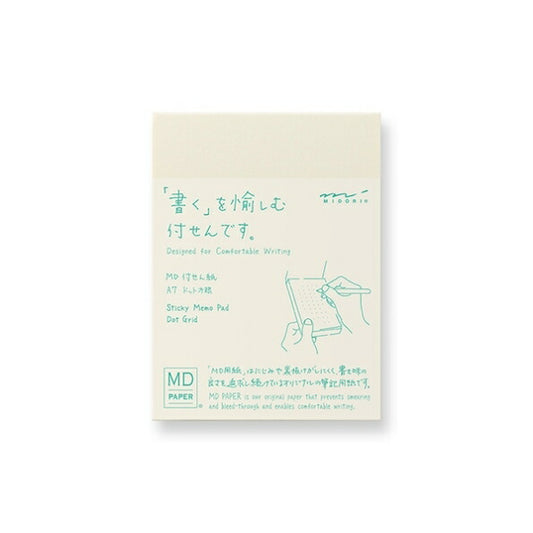 「書く」を愉しむ
付せんです。
Designed for Comfortable Writing
MIDORI
MD 付せん紙
A7 ドット方眼
Sticky Memo Pad
Dot Grid
MD
PAPER
「MD用紙」はにじみや裏抜けがしにくく、書き味の
良さを追求し続けているオリジナルの筆記用紙です。
MD PAPER is our original paper that prevents smearing
and bleed-through and enables comfortable writing.